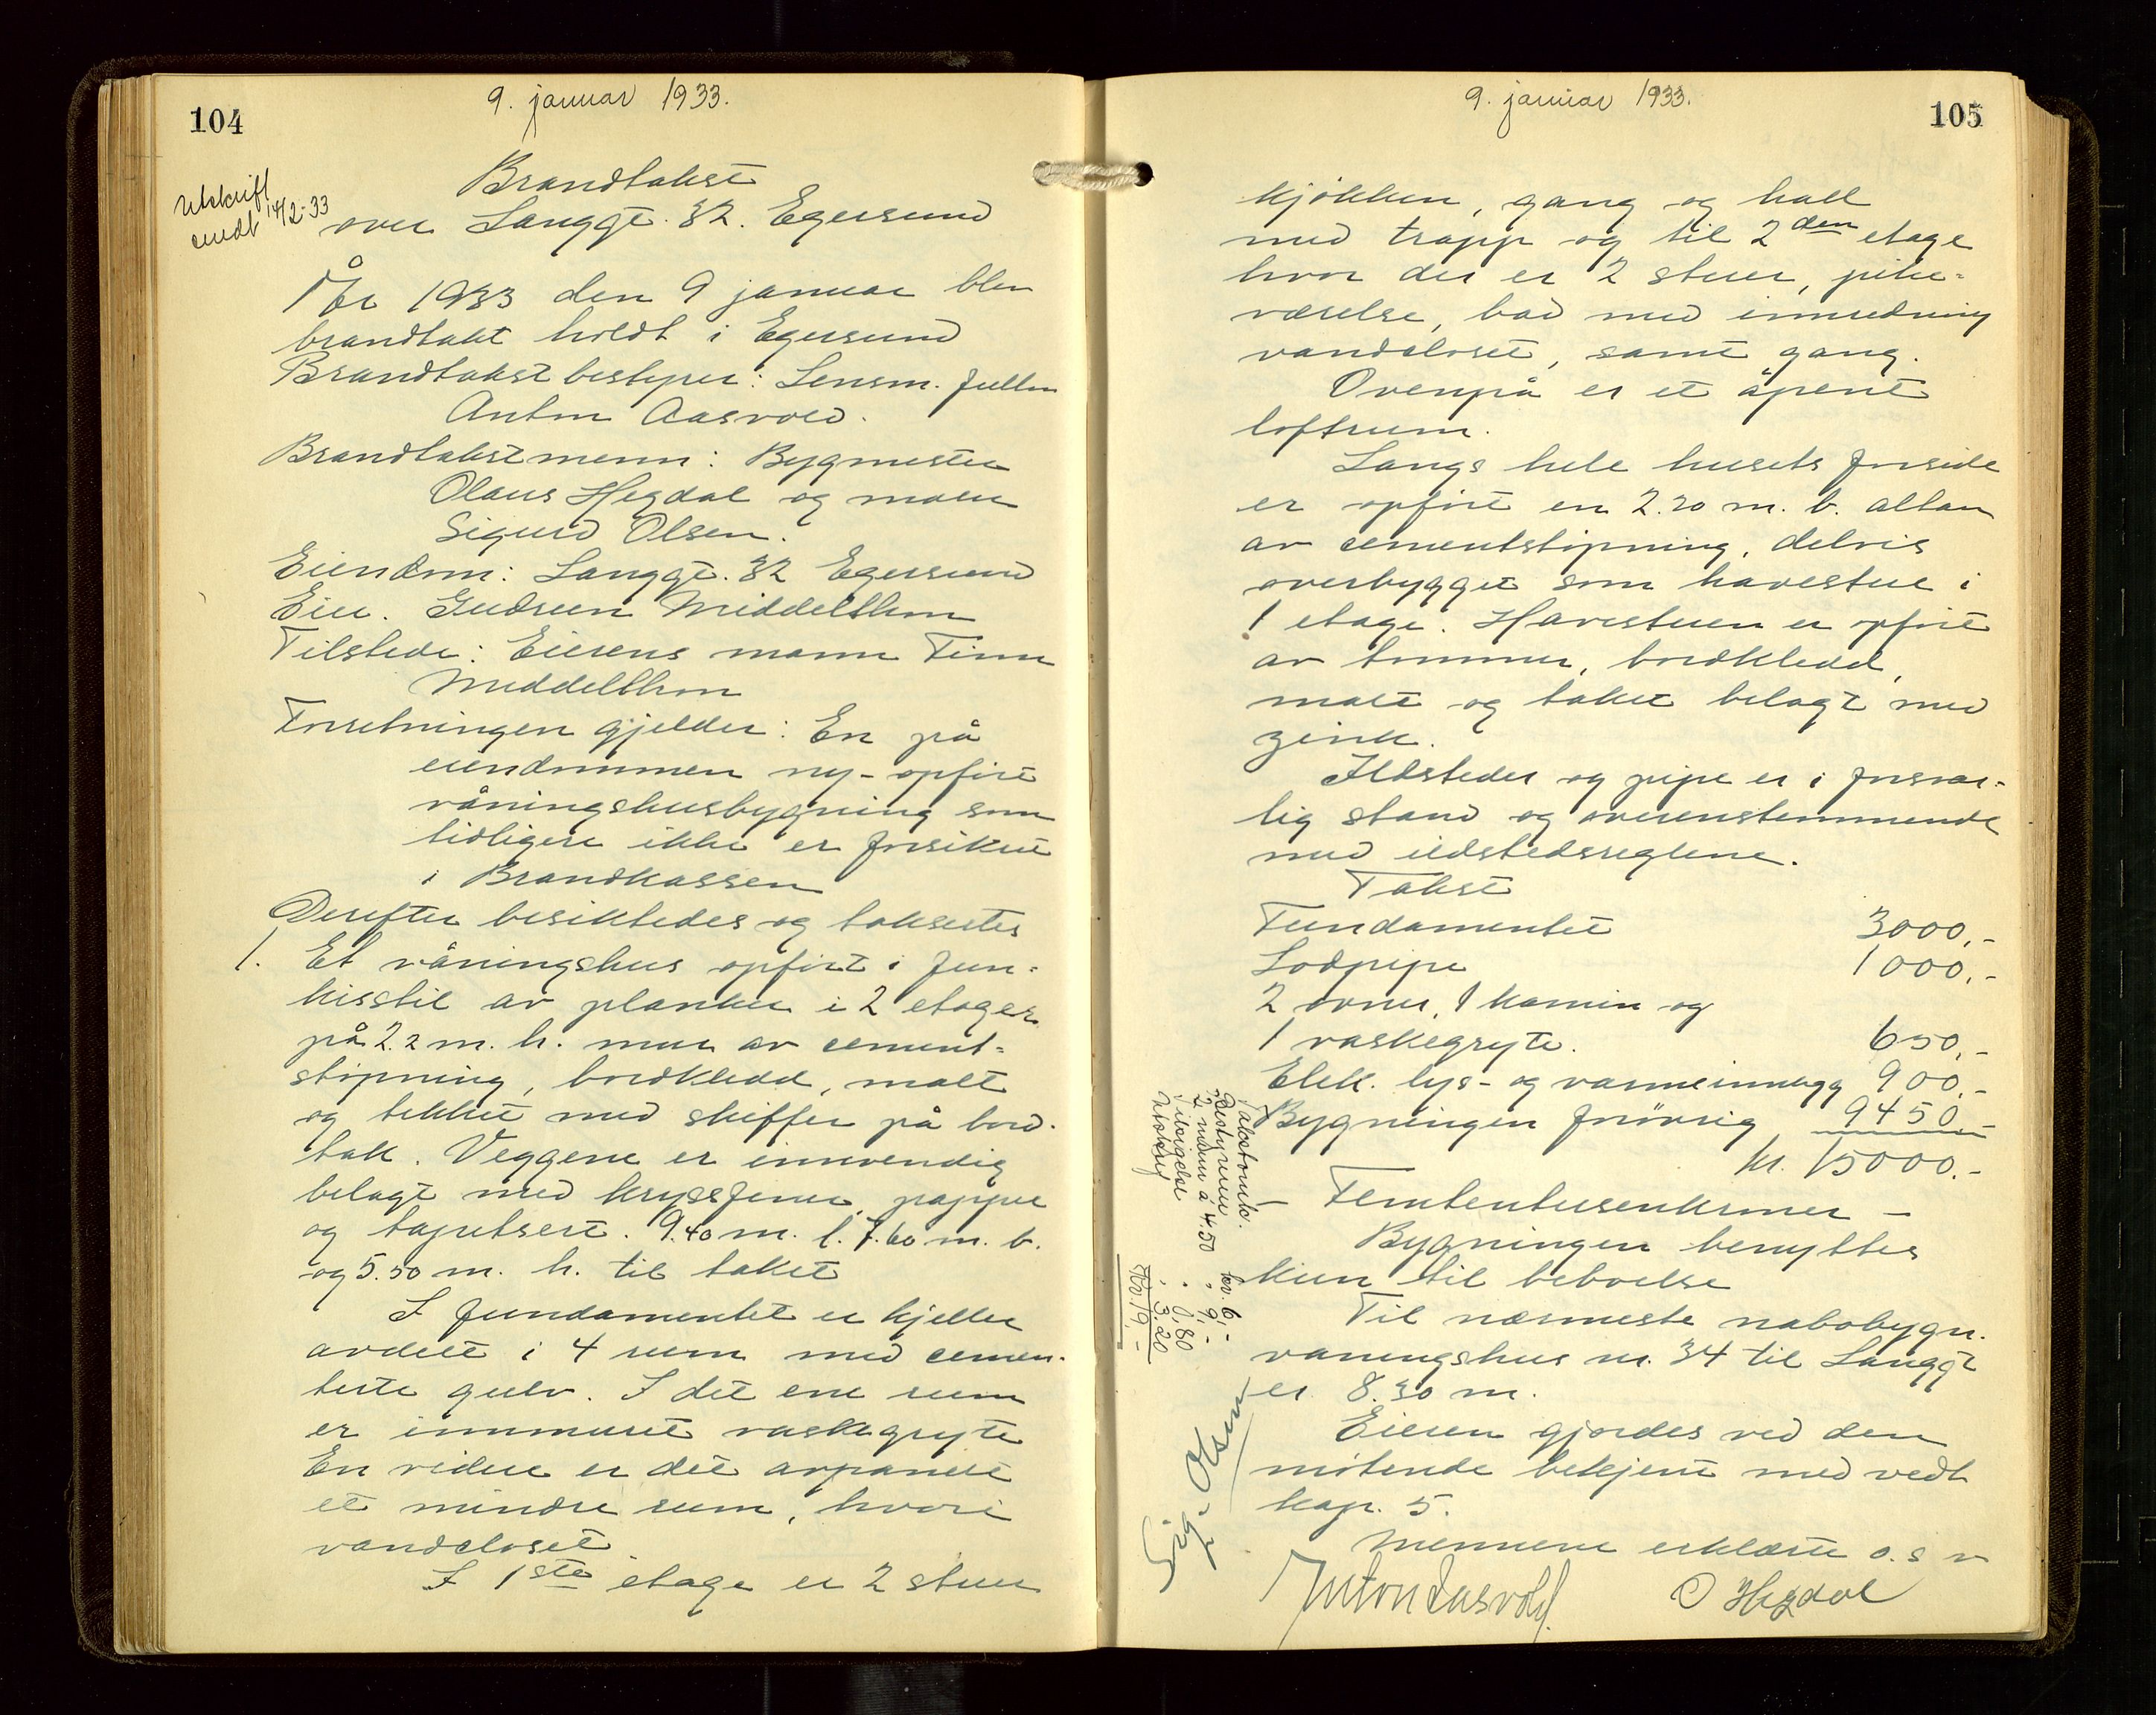 104
9. januar 1933.
Utskrift
sendt 14/2-33
Brandtakst
over Langgt. 32. Egersund
År 1933 den 9 januar blev
brandtakt holdt i Egersund
Brandtakst bestyrer: Lensm. fullm
Anton Aasvold.
Brandtakstmenn: Bygmester
Olaus Hegdal og maler
Sigurd Olsen.
Eiendom: Langgt. 32 Egersund
Eier. Gudrun Middelthon
Tilstede: Eierens mann Finn
Middelthon
Forretningen gjelder: En på
eiendommen ny-opført
våningshusbygning som
tidligere ikke er forsikret
i Brandkassen
Derefter besiktedes og takseres
1. Et våningshus opført i fun-
kisstil av planker i 2 etager
på 2.2 m. h. mur av cement-
støpning, bordkledd, malt
og tekket med skiffer på bord-
tak. Veggene er innvendig
belagt med kryssfiner, pappet
og tapetsert. 9.40 m. l. 7.60 m. b.
og 5.50 m. h. til taket
I fundamentet er kjeller
avdelt i 4 rum med cemen-
terte gulv. I det ene rum
er innmuret vaskegryte
En videre er det avpanelt
et mindre rum, hvori
vandcloset.
I 1ste etage er 2 stuer
105
9. januar 1933.
kjøkken, gang og hall
med trapp og til 2den etage
hvor der er 2 stuer, pike-
værelse, bad med innredning
vandcloset, samt gang.
Ovenpå er et åpent
loftrum.
Langs hele husets forside
er opført en 2.20 m. b. altan
av cementstøpning, delvis
overbygget som havestue i
1 etage. Havestuen er opført
av tømmer, bordkledd,
malt og taket belagt med
zink.
Ildsteder og pipe er i forsvar-
lig stand og overenstemmende
med ildstedsreglene.
Takst
Fundamentet 3000,-
Lodpipe 1000,-
2 ovner, 1 kamin og
1 vaskegryte. 650,-
Elek. lys- og varmeinnlegg 900,-
Bygningen forøvrig 9450,-
kr. 15000.-
- Femtentusenkroner -
Bygningen benyttes
kun til beboelse
Til nærmeste nabobygn.
våningshus nr. 34 til Langgt
er 8.30 m.
Eieren gjordes ved den
møtende bekjent med vedt
kap. 5.
Mennene erklærte o. s v
Anton Aasvold.
O Hegdal
Sig. Olsen
Takstomk.
Bestyreren kr. 6,-
2 menn á 4.50 " 9,-
0,80
Utskrift " 3,20
Kr. 19,-